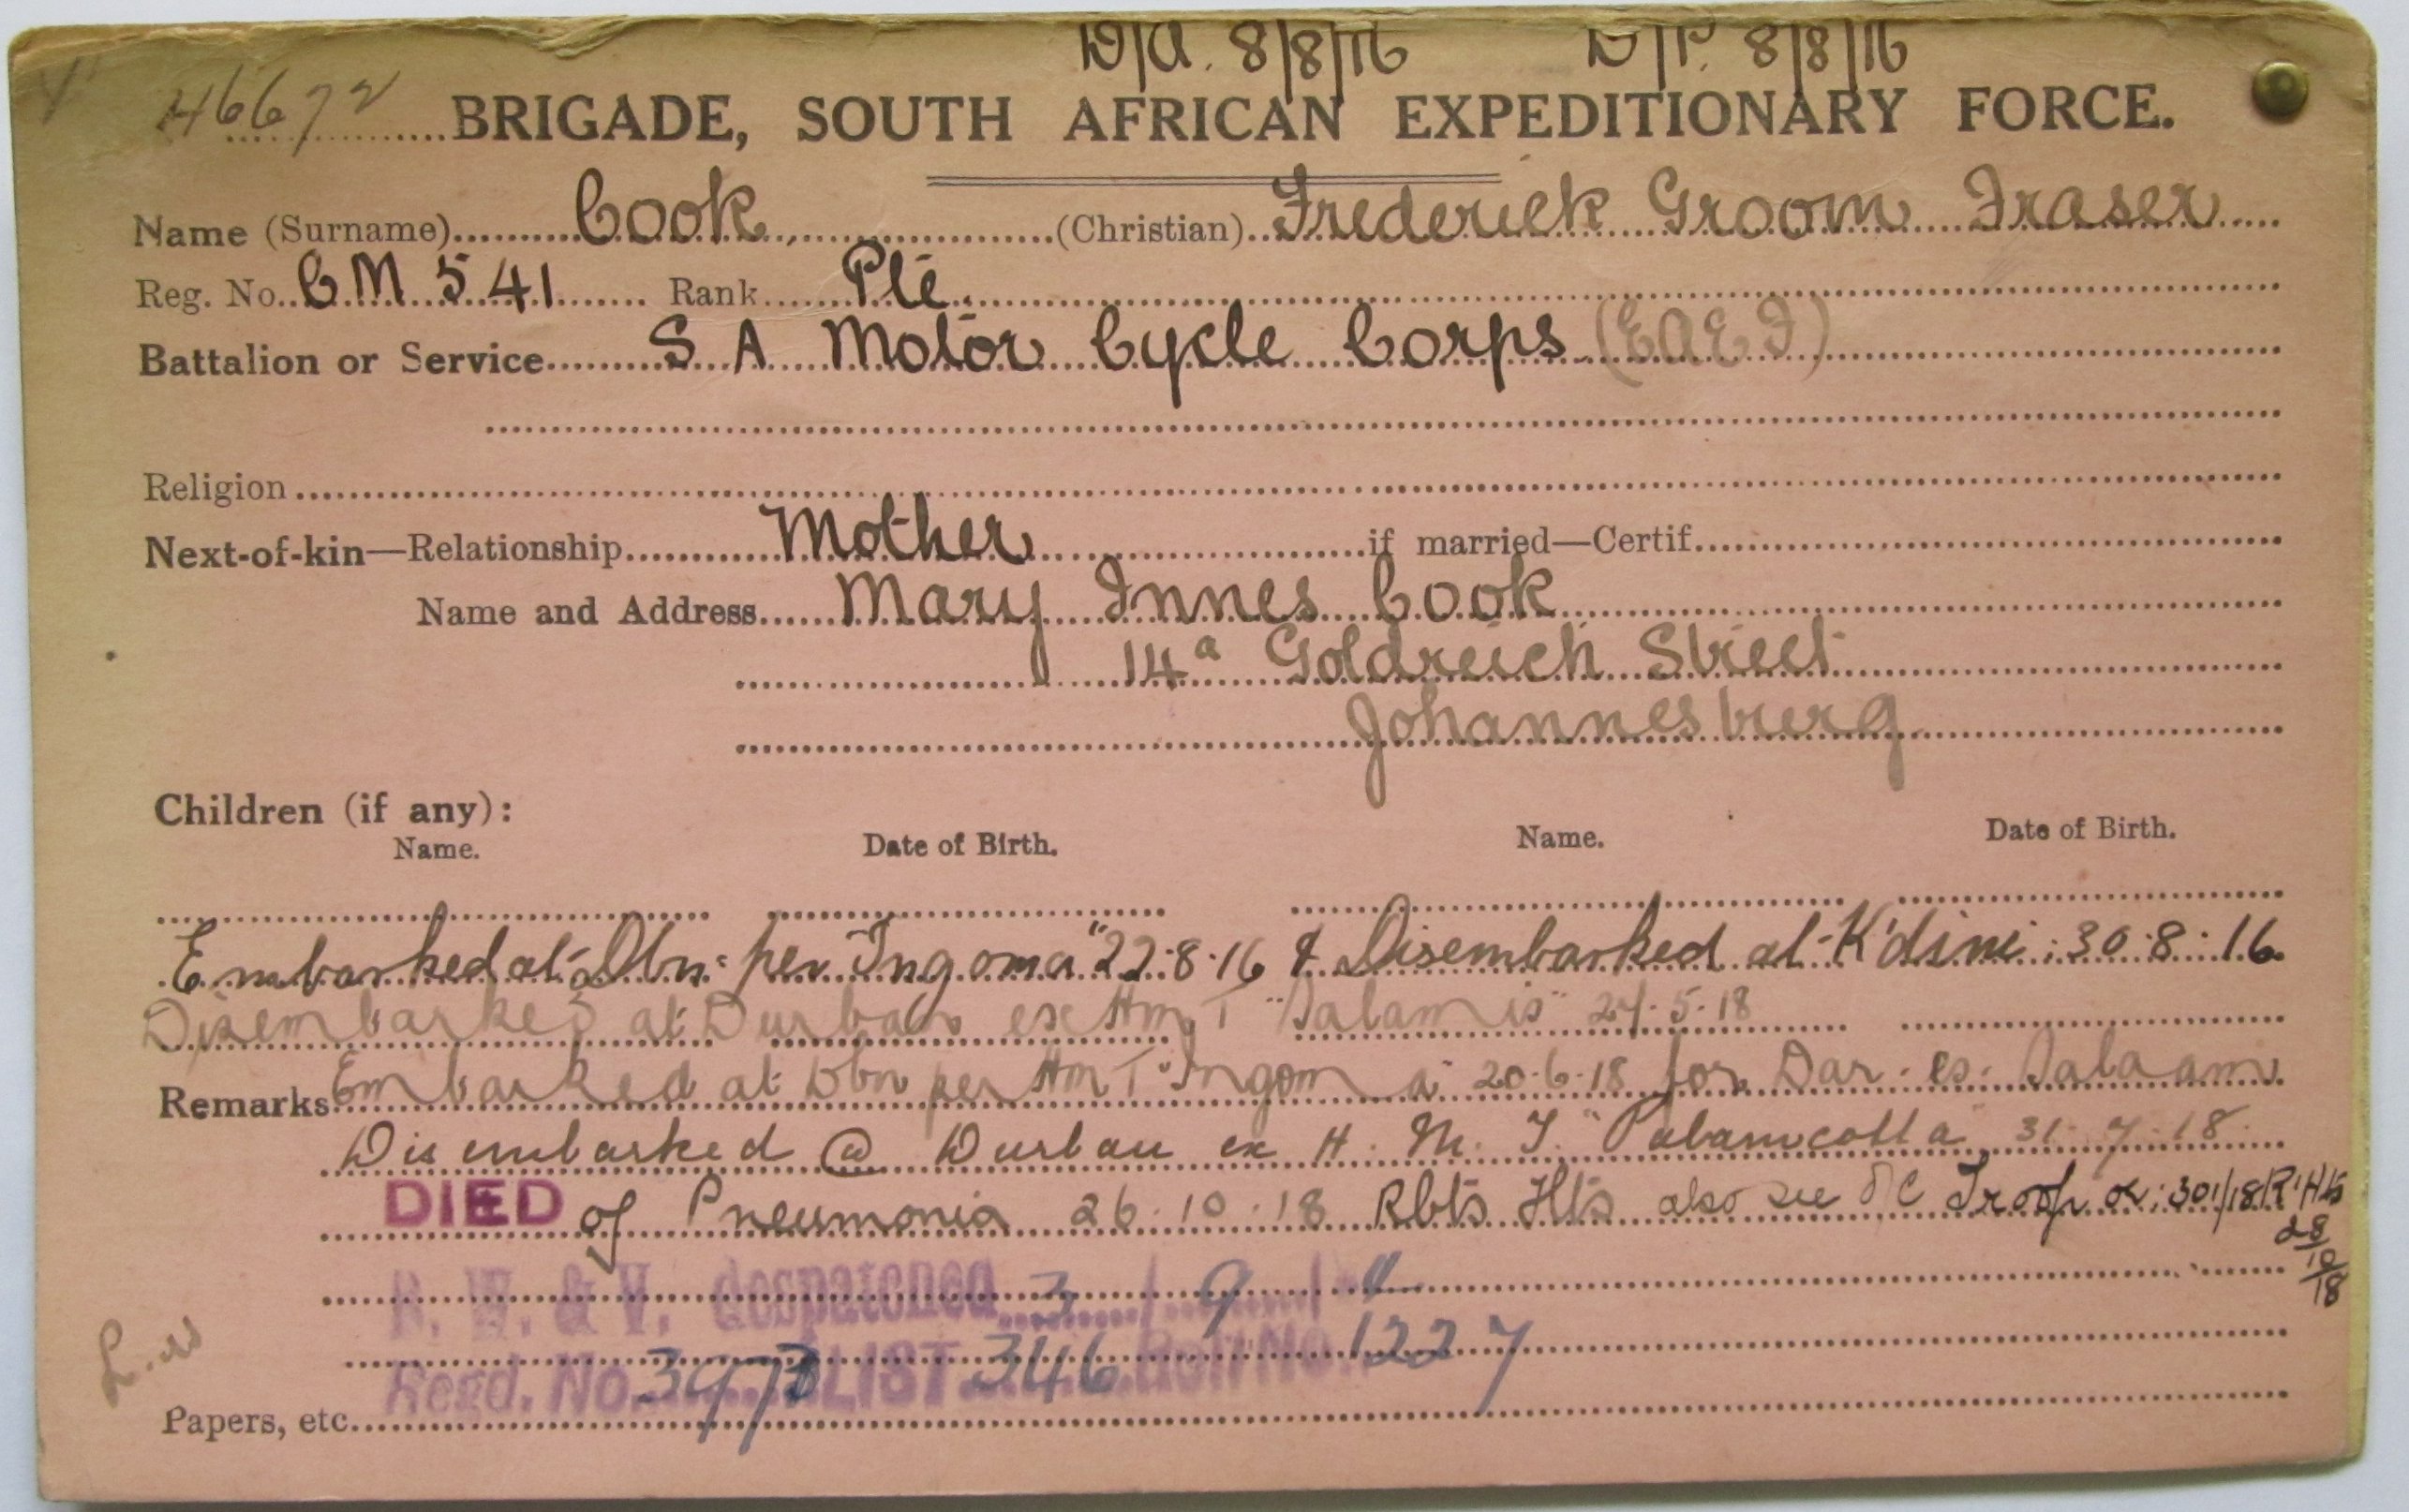 D/A. 8/8/16 D/P. 8/8/16
46672 BRIGADE, SOUTH AFRICAN EXPEDITIONARY FORCE.
Name (Surname) Cook (Christian) Frederick Groom Fraser
Reg. No. CM 541 Rank Pte.
Battalion or Service S A Motor Cycle Corps (EAEF)
Religion
Next-of-kin—Relationship Mother if married—Certif.
Name and Address Mary Innes Cook
14a Goldreich Street
Johannesburg
Children (if any):
Name. Date of Birth. Name. Date of Birth.
Embarked at Dbn: per "Ingoma" 22.8.16 & Disembarked at K'dini: 30.8.16
Disembarked at Durban ex HmT "Salamis" 24.5.18
Remarks Embarked at Dbn per HmT "Ingoma" 20.6.18 for Dar-es-Salaam
Disembarked @ Durban ex H.M.T. "Palamcotta" 31.7.18
DIED of Pneumonia 26.10.18 Rbts Hts also see O/C Troop 301/18/R'Hts
28/10/18
B. W. & V. despatched 3/9/
Regd. No. LIST 346 Roll No. 1227
Papers, etc.